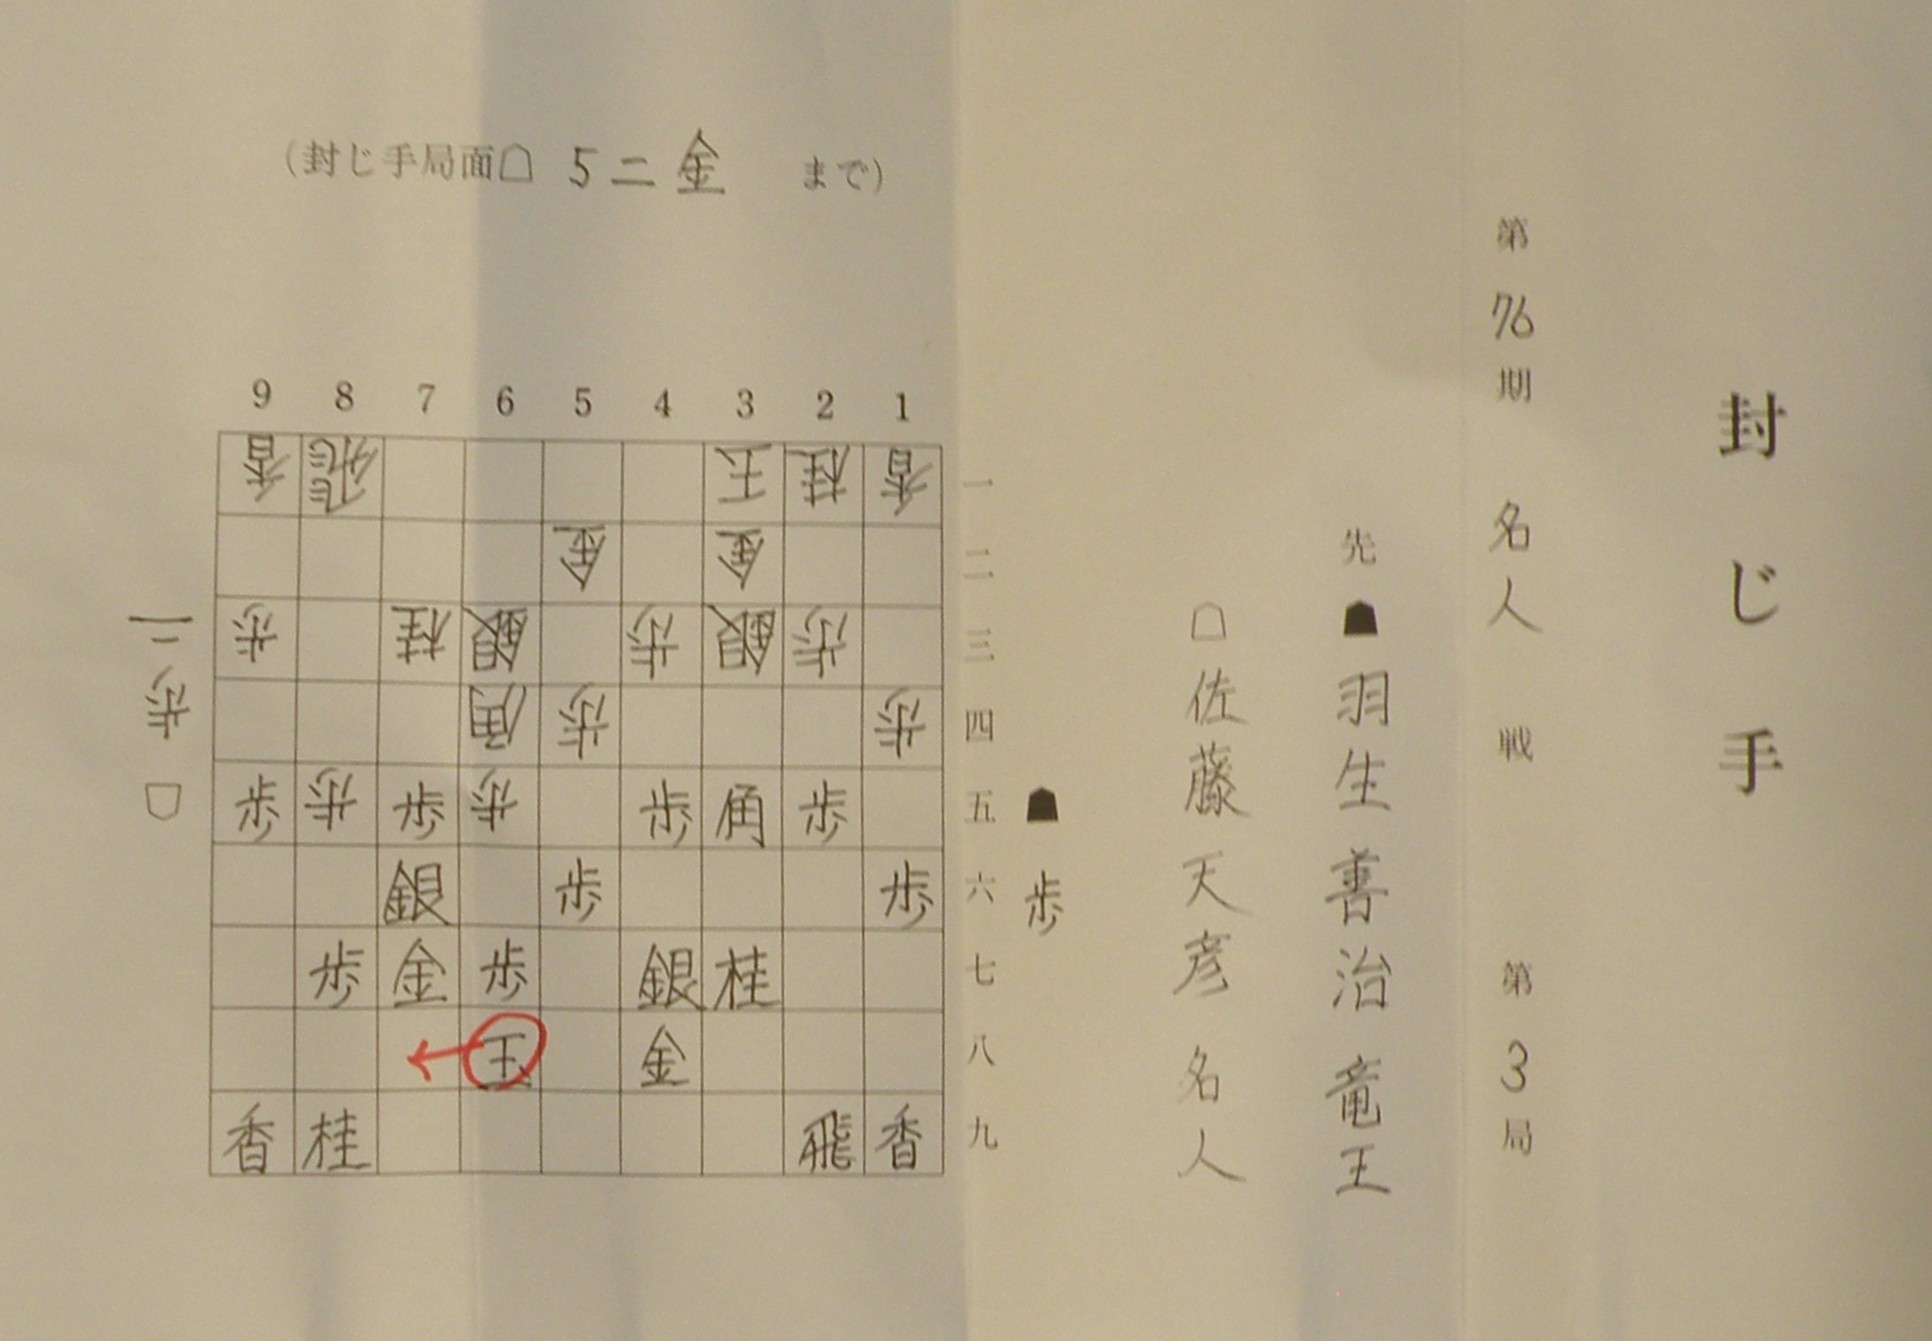 封じ手
第76期 名人戦 第3局
先☗羽生善治竜王
☖佐藤天彦名人
(封じ手局面☖ 5二金 まで)
9 8 7 6 5 4 3 2 1
香 飛 王 桂 香 一
金 金 二
歩 桂 銀 歩 銀 歩 三
角 歩 歩 四
歩 歩 歩 歩 歩 角 歩 五
銀 歩 歩 六
歩 金 歩 銀 桂 七
玉 金 八
香 桂 飛 香 九
☗歩
☖歩二